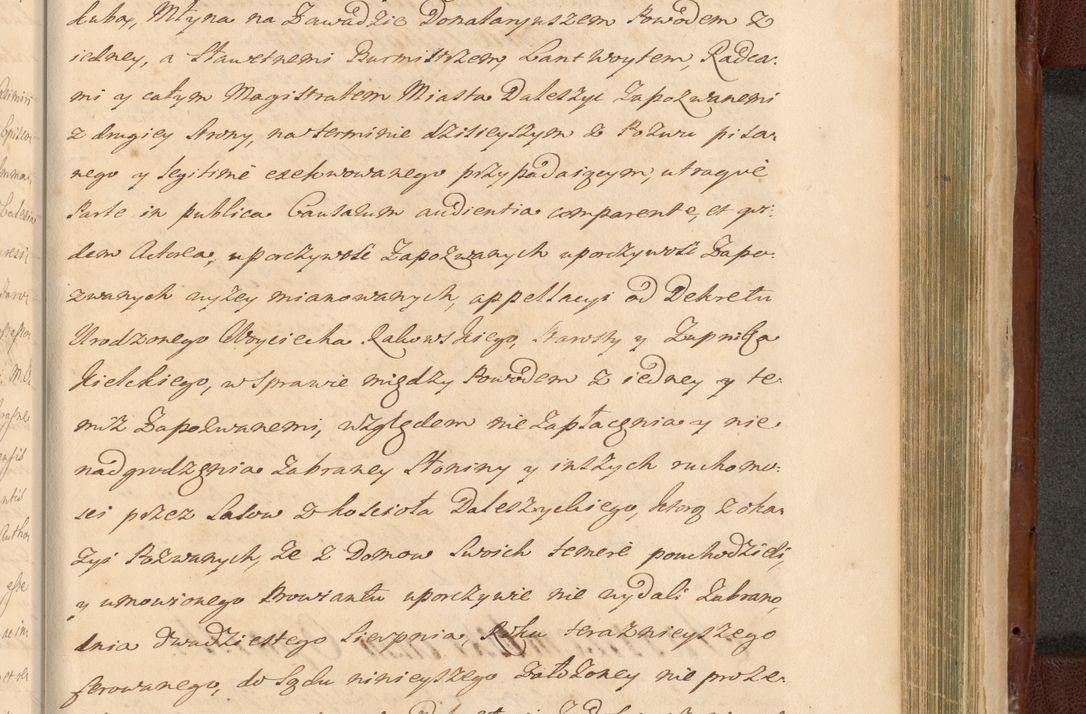 łubą, Młyna na Zawadzie Donataryuszem Powodem z
iedney, a Sławetnemi Burmistrzem, Lantwoytem, Radca-
mi y całym Magistratem Miasta Daleszyc Zapozwanemi
z drugiey strony, na terminie dzisieyszym z Pozwu pisa-
nego y legitime exekwowanego przypadaiącym, utraque
Parte in publica Causarum audientia comparente, et qui-
dem Actorea, uporczywość Zapozwanych uporczywość Zapo-
zwanych wyżey mianowanych, appellacyi od Dekretu
Urodzonego Woyciecha Rakowskiego, Starosty y Zupnika
Kielckiego, w sprawie między Powodem z iedney y te-
muż Zapozwanemi, względem nie Zapłacenia y nie
nadgrodzenia Zabraney Słoniny y inszych ruchomo-
sci przez Sasow z kościoła Daleszyckiego, ktorą z oka-
zyi Pozwanych, że z Domow swoich temere pouchodzieli,
y umowionego Prowiantu uporczywie nie wydali Zabrano,
dnia dwudziestego Sierpnia Roku teraznieyszego
ferowanego, do Sądu ninieyszego Założoney nie proze-